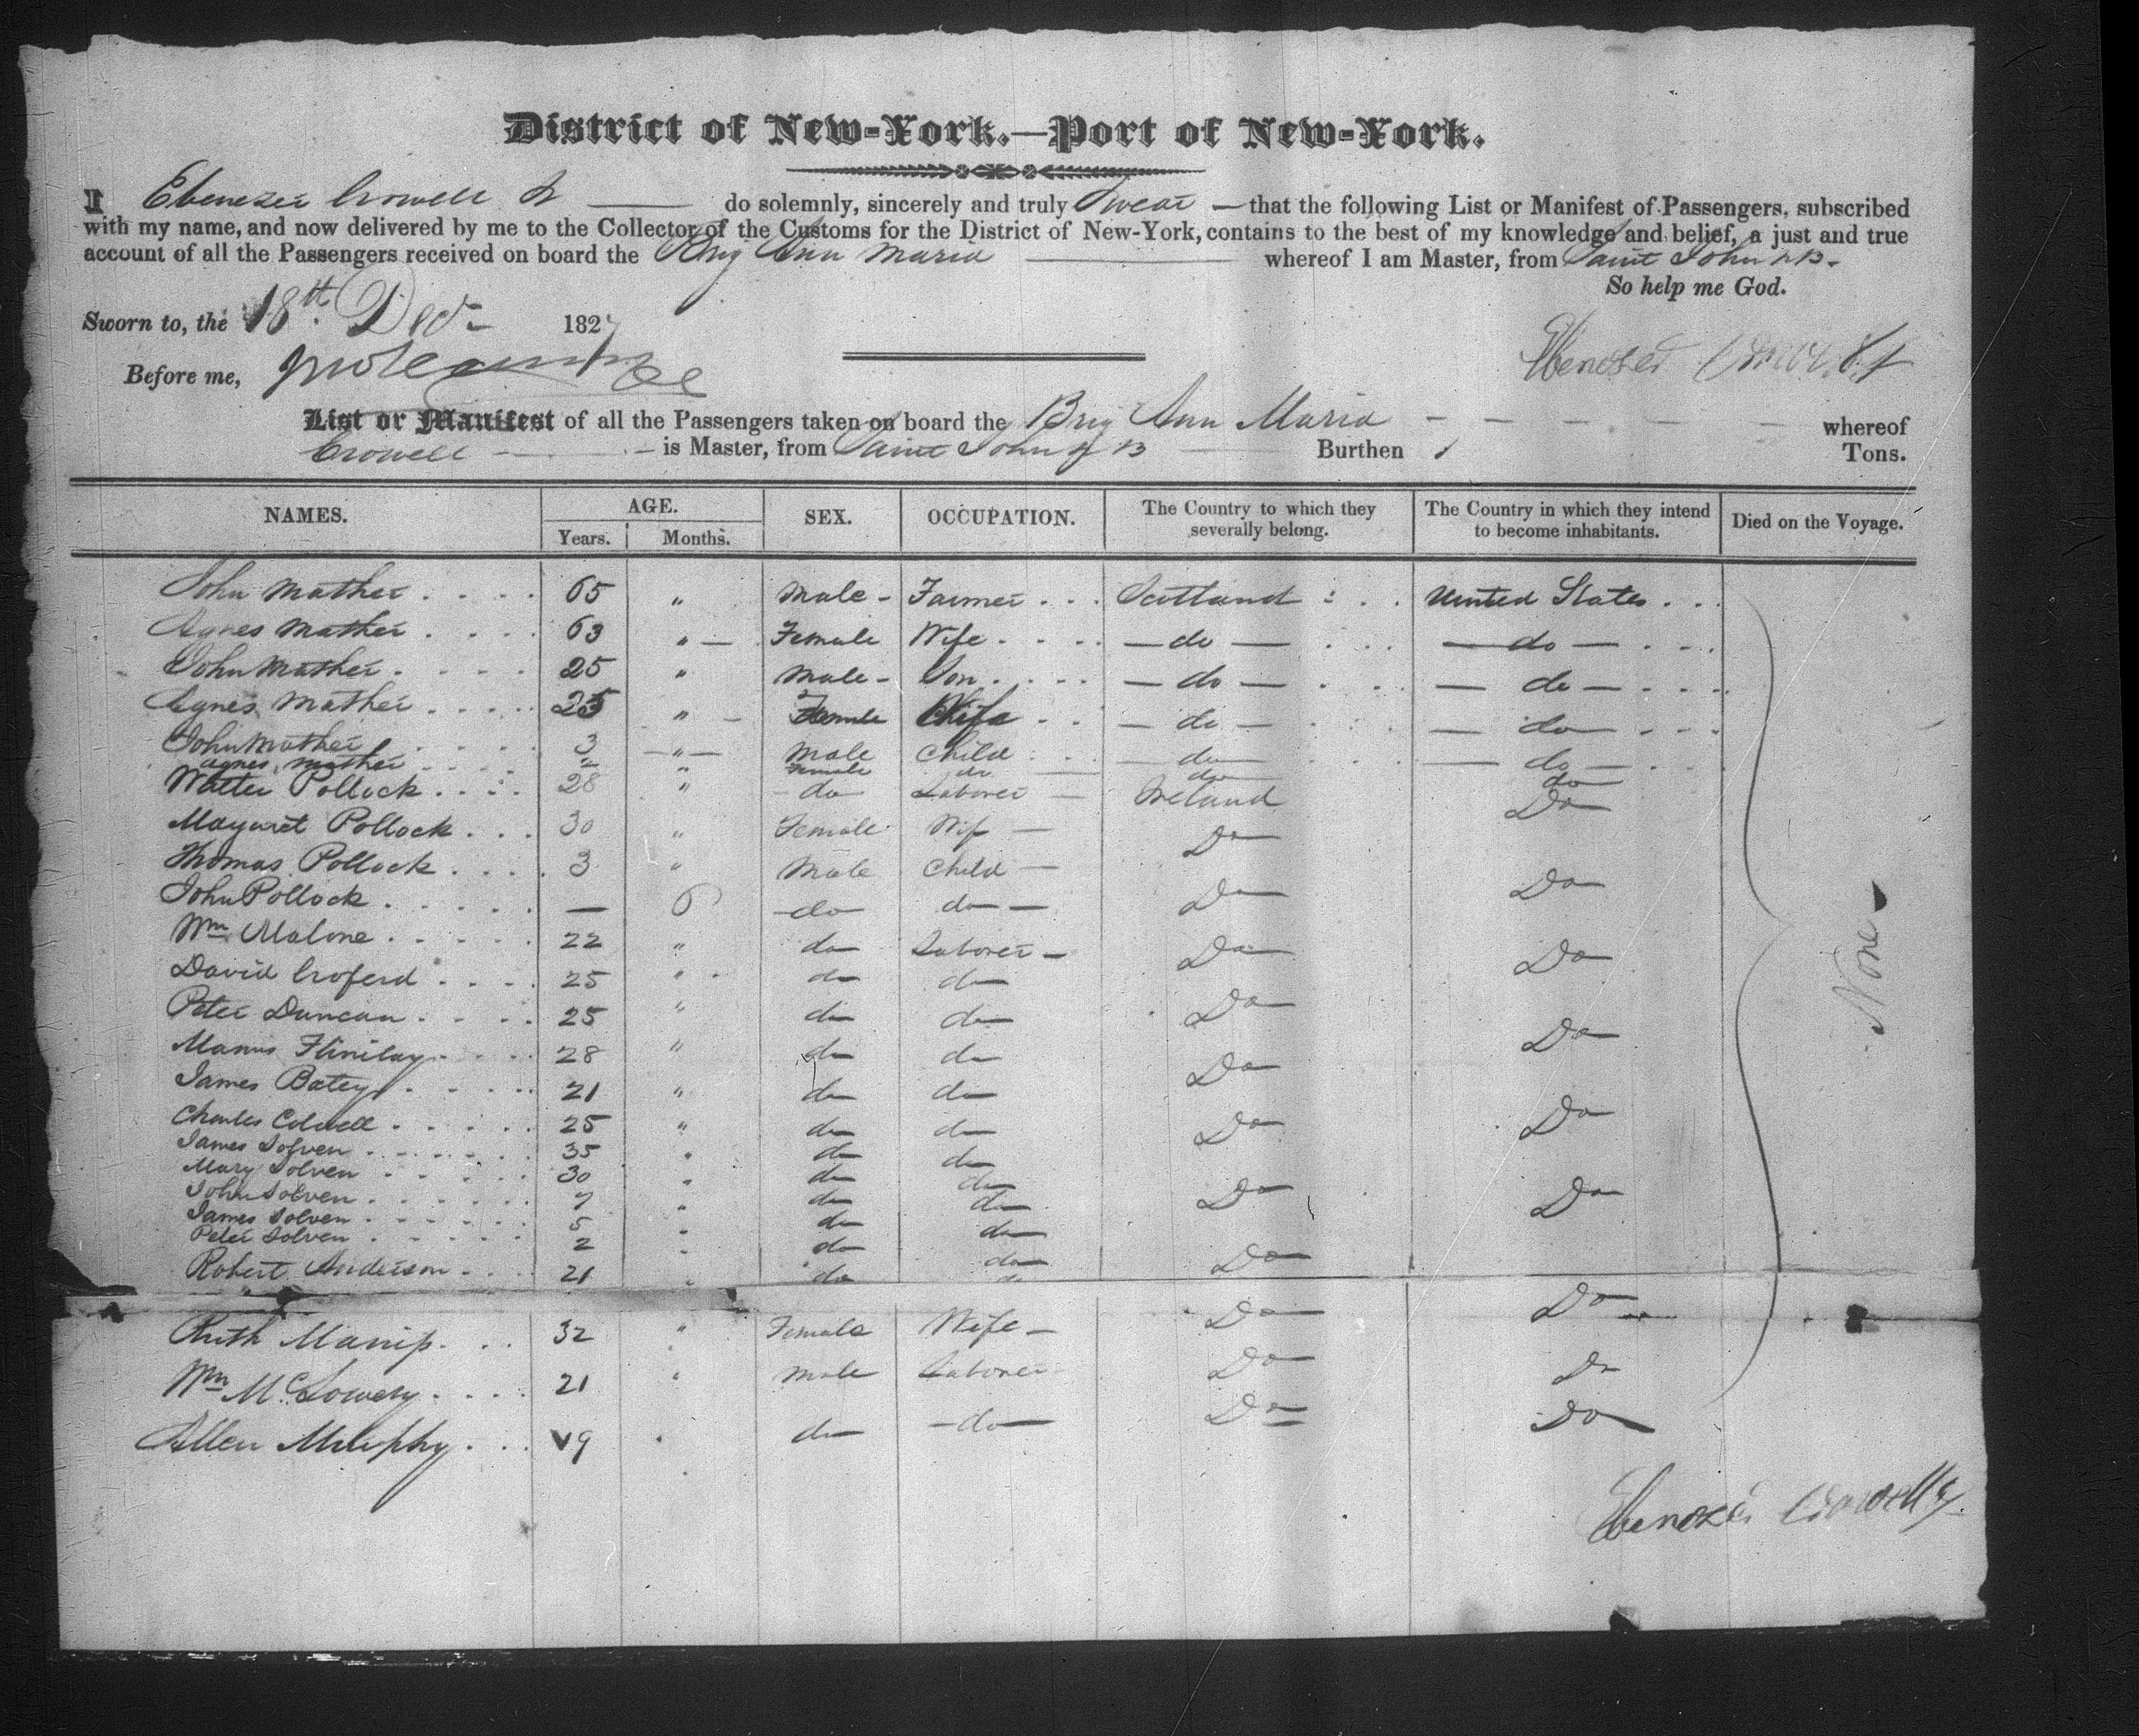 District of New-York.—Port of New-York.
I Ebenezer Crowell Jr do solemnly, sincerely and truly Swear — that the following List or Manifest of Passengers, subscribed
with my name, and now delivered by me to the Collector of the Customs for the District of New-York, contains to the best of my knowledge and belief, a just and true
account of all the Passengers received on board the Brig Ann Maria whereof I am Master, from Saint John N B.
So help me God.
Sworn to, the 18th. Dec. 1827
Before me,
Ebenezer Crowell Jr
List or Manifest of all the Passengers taken on board the Brig Ann Maria whereof
Crowell is Master, from Saint John N B Burthen Tons.
NAMES. AGE. SEX. OCCUPATION. The Country to which they severally belong. The Country in which they intend to become inhabitants. Died on the Voyage.
Years. Months.
John Mather 65 " Male Farmer Scotland United States
Agnes Mather 63 " Female Wife do do
John Mather 25 " Male Son do do
Agnes Mather 25 " Female Wife do do
John Mather 3 " Male Child do do
Agnes Mather " " Female do do do
Walter Pollock 28 " do Laborer Ireland Do
Margaret Pollock 30 " Female Wife Do
Thomas Pollock 3 " Male Child Do
John Pollock — 6 do do Do
Wm Malone 22 " do Laborer Do Do
David Croferd 25 " do do
Peter Duncan 25 " do do Do
Manus 28 " do do Do
James Batey 21 " do do Do
Charles Colwell 25 " do do Do Do
James Solven 35 " do do
Mary Solven 30 " do do
John Solven 7 " do do Do Do
James Solven 5 " do do
Peter Solven 2 " do do
Robert Anderson 21 " do do Do
Ruth Manip 32 " Female Wife Do Do
Wm McLowery 21 " Male Laborer Do Do
Allen Murphy 19 do do Do Do
None
Ebenezer Crowell Jr